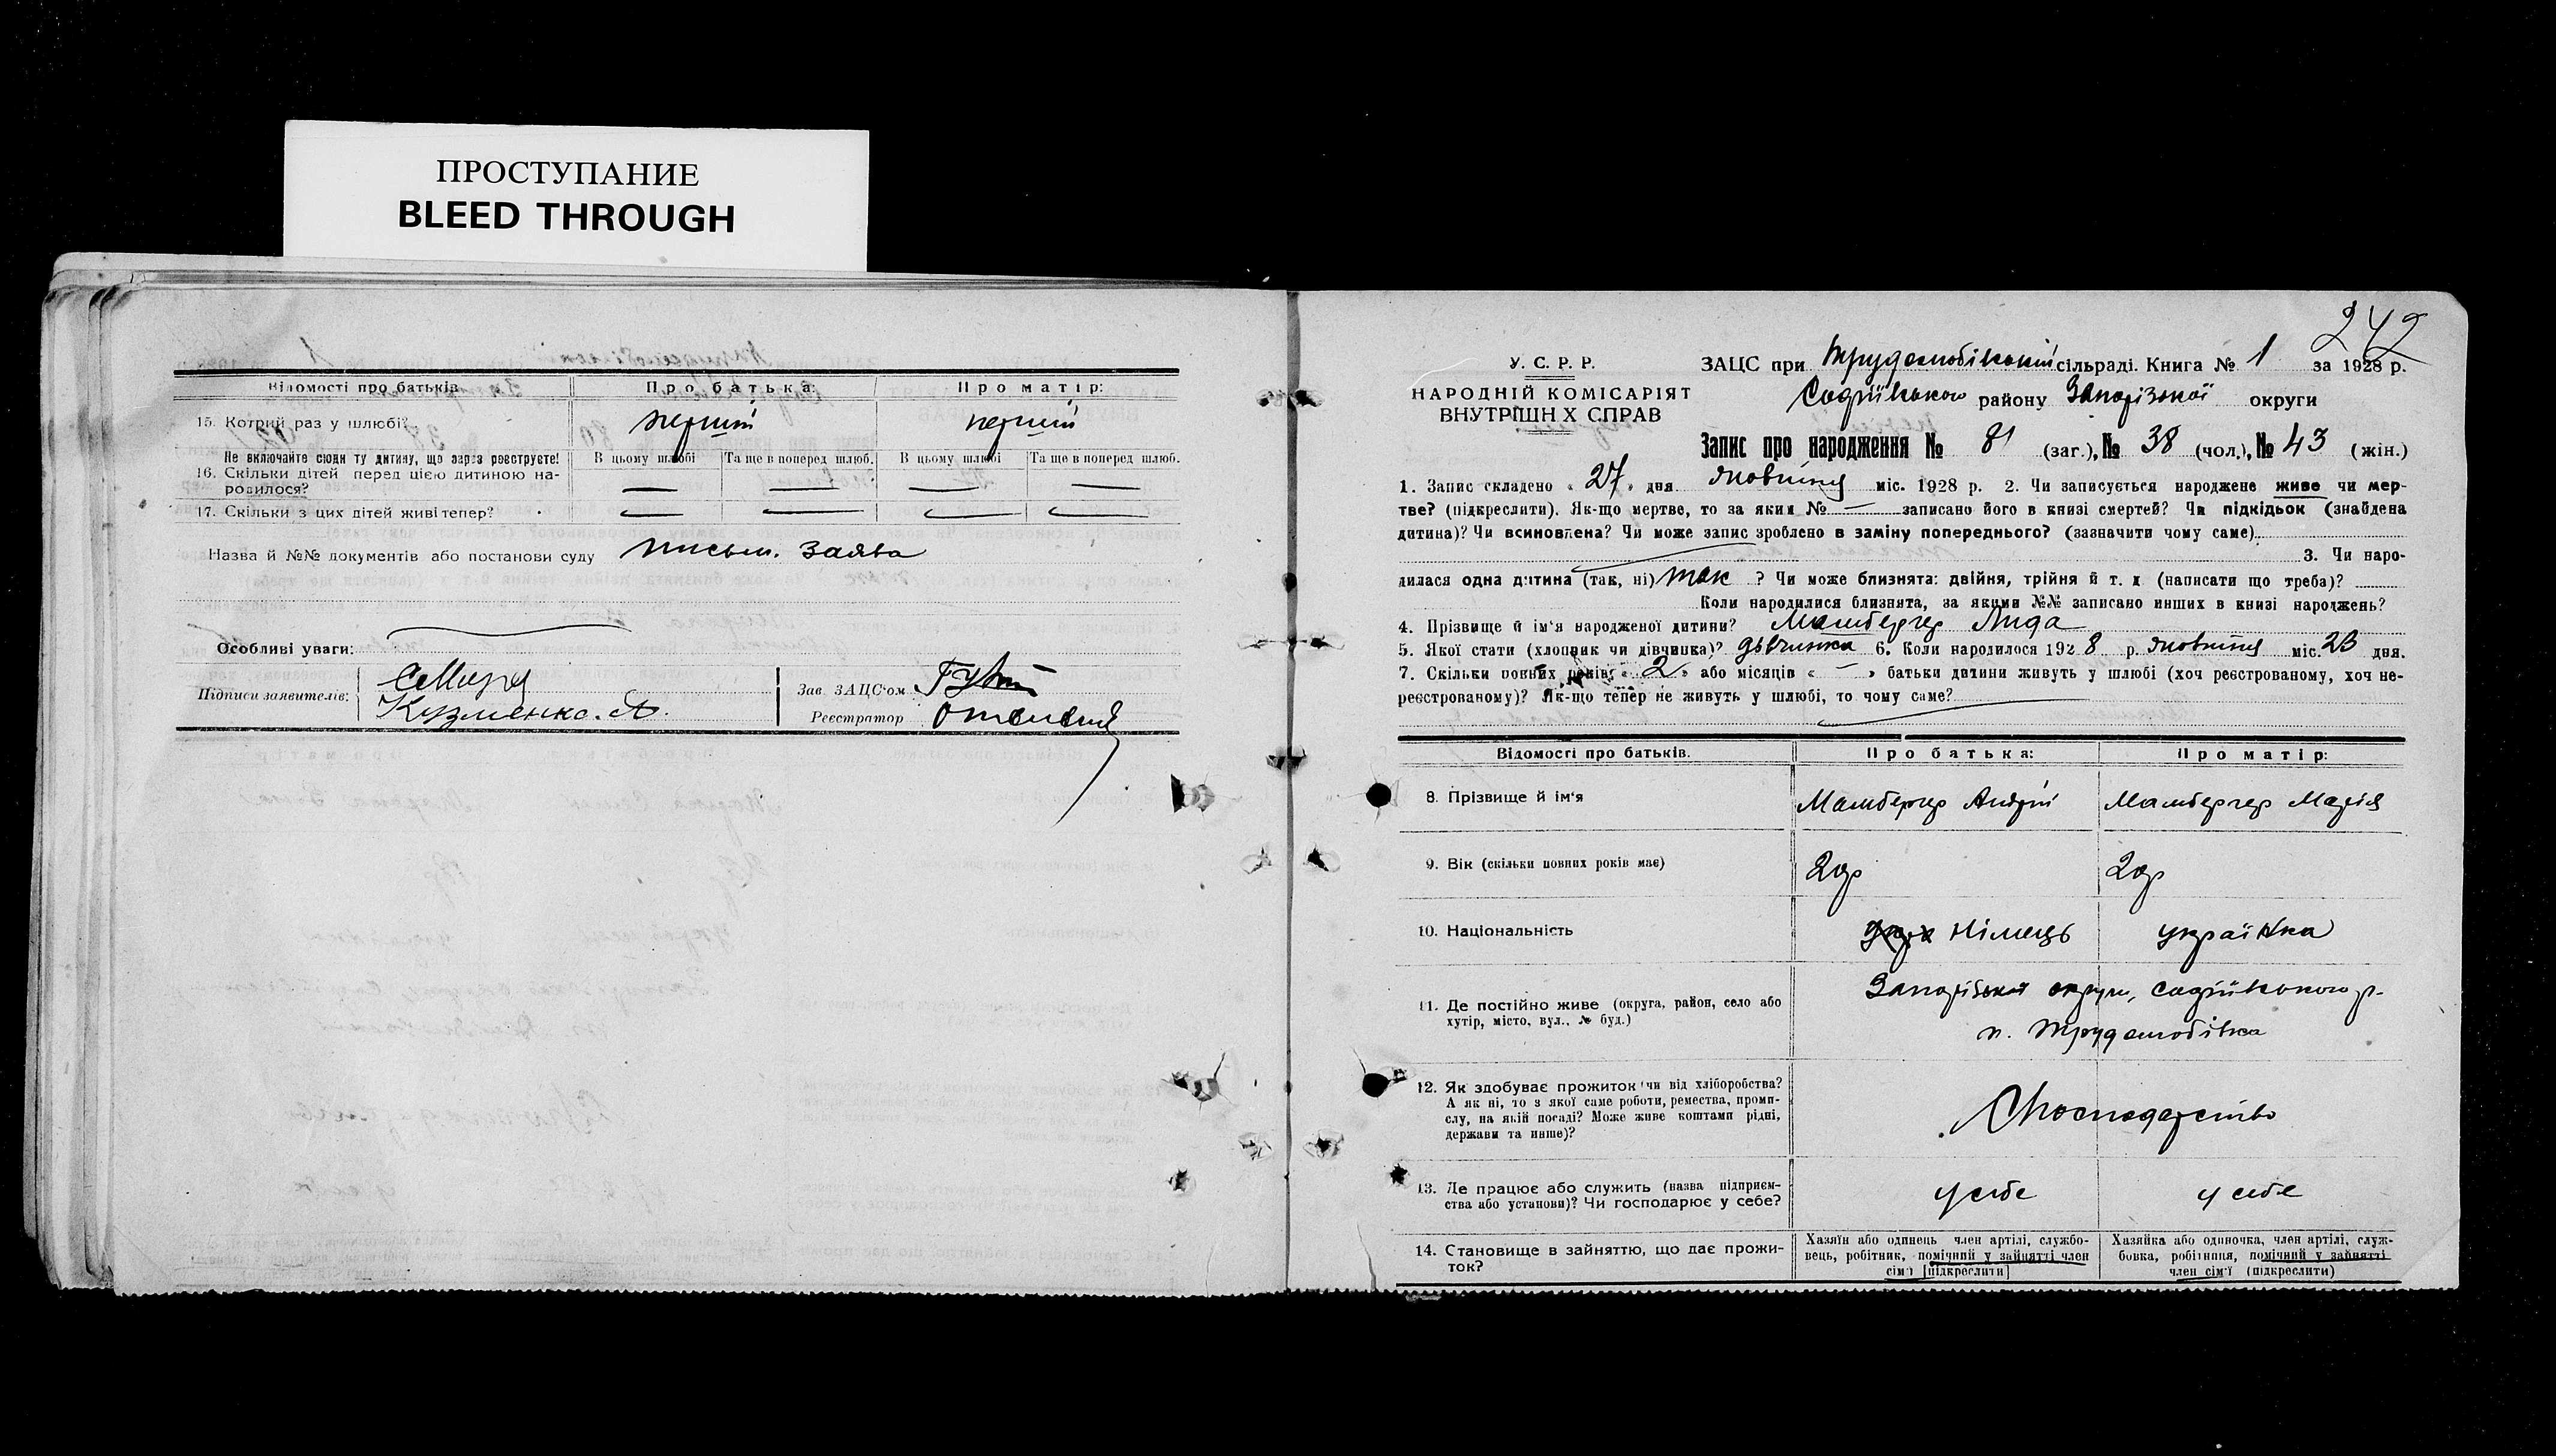 ПРОСТУПАНИЕ
BLEED THROUGH
Відомості про батьків
Про батька:
Про матір:
15. Котрий раз у шлюбі?
перший
перший
Не включайте сюди ту дитину, що зараз реєструєте!
В цьому шлюбі
Та ще в поперед шлюб.
В цьому шлюбі
Та ще в поперед шлюб.
16. Скільки дітей перед цією дитиною на-
родилося?
— — — —
17. Скільки з цих дітей живі тепер?
— — — —
Назва й №№ документів або постанови суду письм. заява
Особливі уваги:
Підписи заявителів:
Кузменко. А.
Зав. ЗАЦС'ом
Реєстратор
242
У. С. Р. Р.
НАРОДНІЙ КОМІСАРІЯТ
ВНУТРІШН Х СПРАВ
ЗАЦС при Трудолюбівській сільраді. Книга № 1 за 1928 р.
Софіївського району Запорізької округи
Запис про народження № 81 (заг.), № 38 (чол.), № 43 (жін.)
1. Запис складено « 27 » дня жовтня міс. 1928 р. 2. Чи записується народжене живе чи мер-
тве? (підкреслити). Як-що мертве, то за яким № — записано його в книзі смертей? Чи підкідьок (знайдена
дитина)? Чи всиновлена? Чи може запис зроблено в заміну попереднього? (зазначити чому саме)
3. Чи наро-
дилася одна дитина (так, ні) так ? Чи може близнята: двійня, трійня й т. д (написати що треба)?
Коли народилися близнята, за якими №№ записано инших в книзі народжень?
4. Прізвище й ім'я народженої дитини? Мамбергер Лида
5. Якої статі (хлопчик чи дівчинка)? дівчинка 6. Коли народилося 1928 р. жовтня міс. 23 дня.
7. Скільки повних років « 2 » або місяців « — » батьки дитини живуть у шлюбі (хоч реєстрованому, хоч не-
реєстрованому)? Як-що тепер не живуть у шлюбі, то чому саме?
Відомості про батьків.
Про батька:
Про матір:
8. Прізвище й ім'я
Мамбергер Андрій
Мамбергер Марія
9. Вік (скільки повних років має)
20р
20р
10. Національність
німець
українка
11. Де постійно живе (округа, район, село або
хутір, місто, вул., № буд.)
Запорізької округи, Софіївського р.
п. Трудолюбівка
12. Як здобуває прожиток (чи від хліборобства?
А як ні, то з якої саме роботи, ремества, проми-
слу, на якій посаді? Може живе коштами рідні,
держави та инше)?
13. Де працює або служить (назва підприєм-
ства або установи)? Чи господарює у себе?
у себе
у себе
14. Становище в зайняттю, що дає прожи-
ток?
Хазяїн або одинець член артілі, службо-
вець, робітник, помічний у зайнятті член
сім'ї [підкреслити]
Хазяйка або одиночка, член артілі, служ-
бовка, робітниця, помічний у зайнятті
член сім'ї (підкреслити)